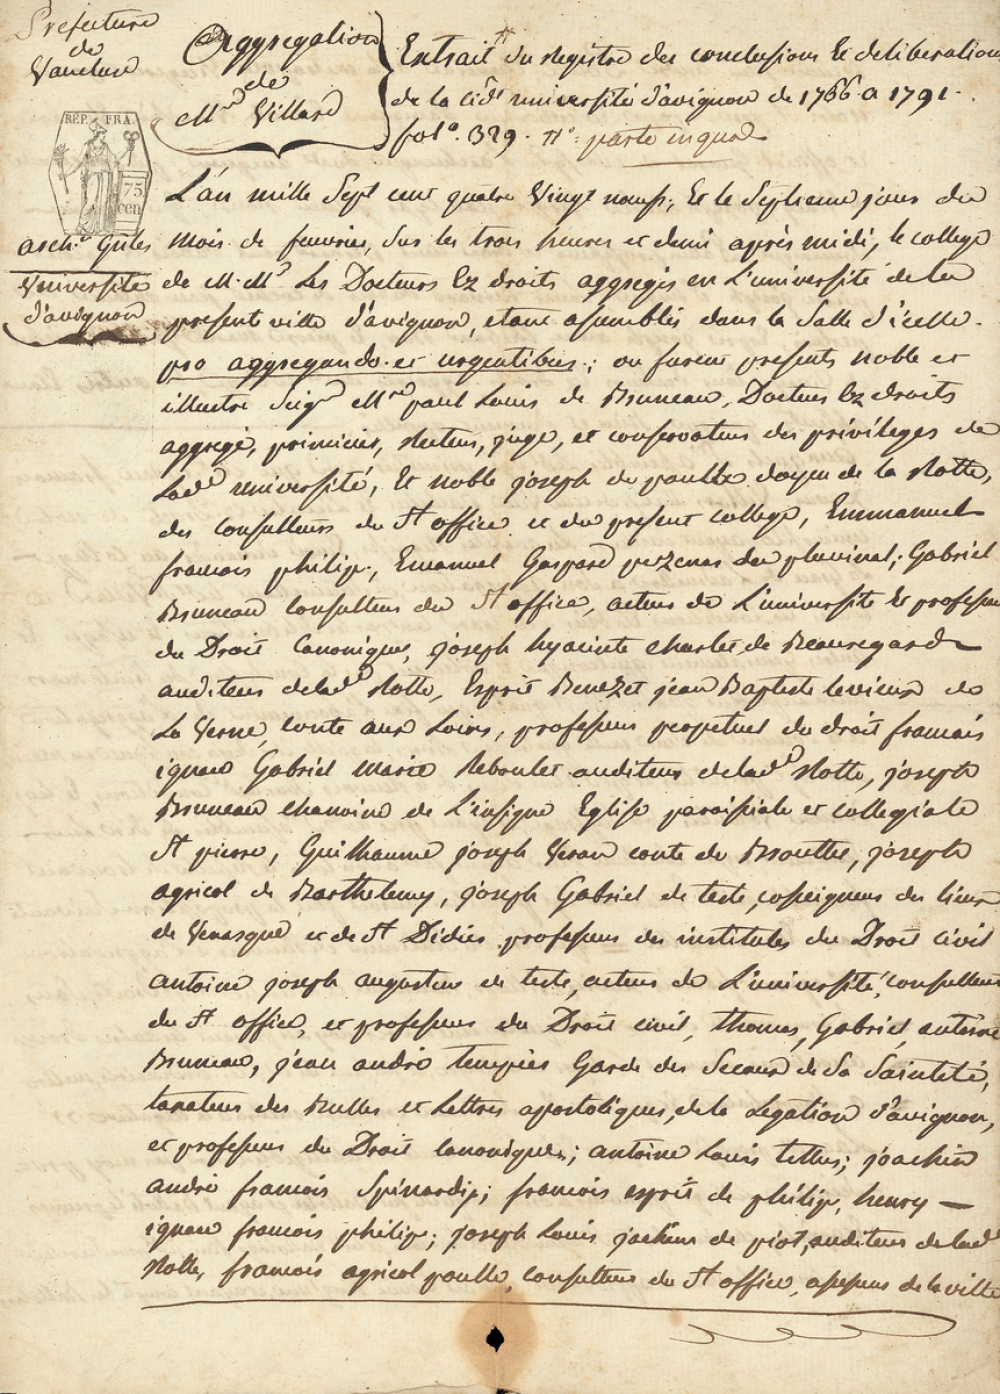 Préfecture
de
Vaucluse
Aggregation
de
Mre de Villard
Extrait du registre des conclusions et deliberations
de la cidt université d'avignon de 1766 a 1791.
fol°. 329. 11° parte in quad
REP. FRA.
75
cen
L'an mille Sept cent quatre Vingt neuf, Et le Septieme jour du
archi. Gales
mois de fevrier, sur les trois heures et demi après midi, le college
Université
d'avignon
de M.Mrs Les Docteurs Ez droits aggregés en L'université de la
presente ville d'avignon, etant assemblés dans la Salle d'icelle.
pro aggregando et urgentibus; ou furent presents noble et
illustre Seigr Mre paul Louis de Bruneau, Docteur Ez droits
aggregé, primicier, Recteur, juge, et conservateur des privileges de
Lade université, Et noble joseph de paulle doyen de la Rotte,
des consulteurs du St office et du present college, Emmanuel
francois philip, Emanuel Gaspard pezenas de pluvinal; Gabriel
Bruneau Consulteur du St office, acteur de L'université Et professeur
du Droit Canonique, joseph hyacinte charlet de Beauregard
auditeur de lade Rotte, Esprit Benezet jean Baptiste levieux de
La Verne, comte aux Loix, professeur perpetuel du droit francais
ignace Gabriel Marie Reboulet auditeur de lade Rotte, joseph
Bruneau chanoine de L'insigne Eglise paroissiale et collegiale
St pierre, Guilhaume joseph Veran comte de Brouthe, joseph
agricol de Barthelemy, joseph Gabriel de teste, coseigneur du lieux
de Venasque et de St Didier professeur des institutes du Droit civil
antoine joseph augustin de teste, acteur de L'université, consulteur
du St office, et professeur du Droit civil, thomas, Gabriel, antoine
Bruneau, jean andré tempier Garde des Sceaux de Sa Sainteté,
taxateur des Bulles et Lettres apostoliques, de la Legation d'avignon,
et professeur du Droit canonique; antoine Louis tellus; joachim
andré francois Spinardip; francois esprit de philip, henry —
ignace francois philip; joseph Louis joachim de piot, auditeur de lade
Rotte, francois agricol paulle, consulteur du St office, assesseur de la ville